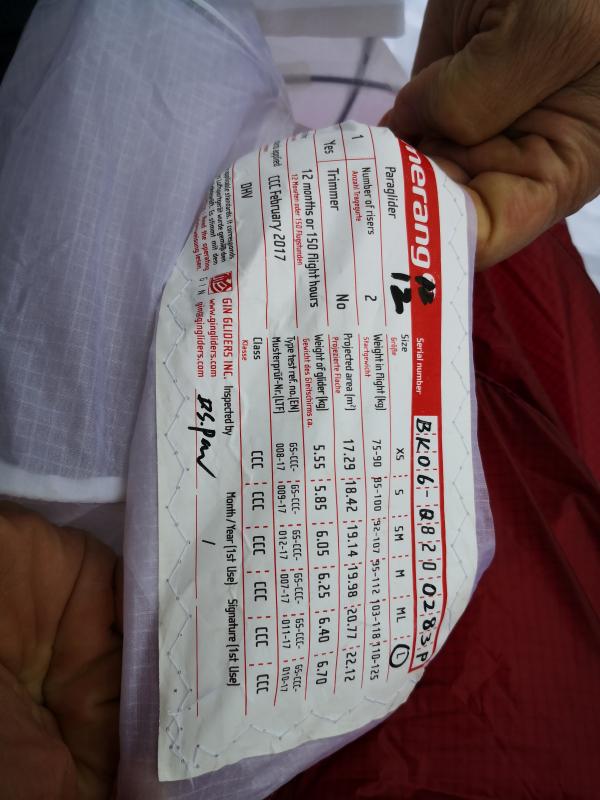 merang 12
Serial number BK06-Q8200283P
Paraglider
Size XS S SM M ML L
Größe
1 Number of risers 2 Weight in flight (kg) 75-90 85-100 92-107 95-112 103-118 110-125
Anzahl Tragegurte Startgewicht
Yes Trimmer No Projected area (m²) 17.29 18.42 19.14 19.98 20.77 22.12
Projezierte Fläche
12 months or 150 flight hours Weight of glider (kg) 5.55 5.85 6.05 6.25 6.40 6.70
12 Monten oder 150 Flugstunden Gewicht des Gleitschirms ca.
applied CCC February 2017 Type test ref. no.(EN) GS-CCC- GS-CCC- GS-CCC- GS-CCC- GS-CCC- GS-CCC-
Musterprüf-Nr.(LTF) 008-17 009-17 012-17 007-17 011-17 010-17
DHV Class CCC CCC CCC CCC CCC CCC
Klasse
applicable standards. It corresponds
GIN GLIDERS INC. Inspected by Month / Year (1st Use) Signature (1st Use)
read the operating
GIN www.gingliders.com /
gin@gingliders.com